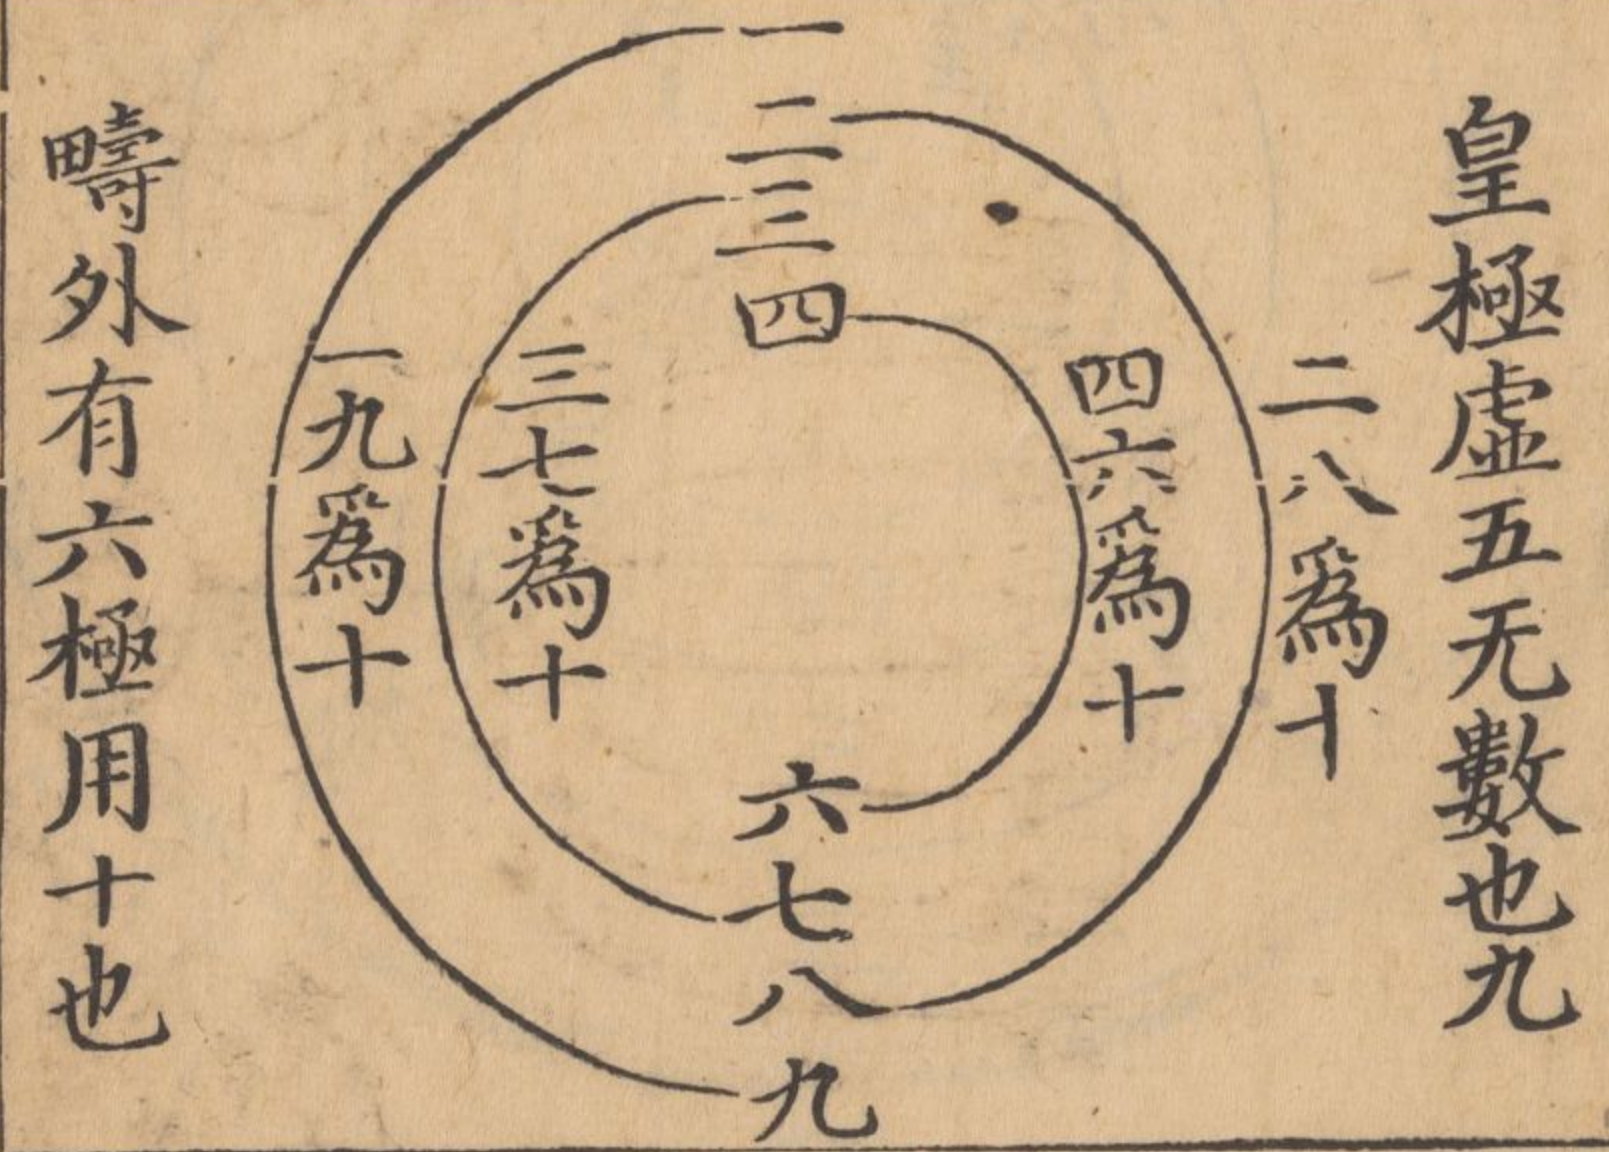 皇極虛五无數也九
二八為十
四六為十
一
二
三
四
六
七
八
九
三七為十
一九為十
疇外有六極用十也